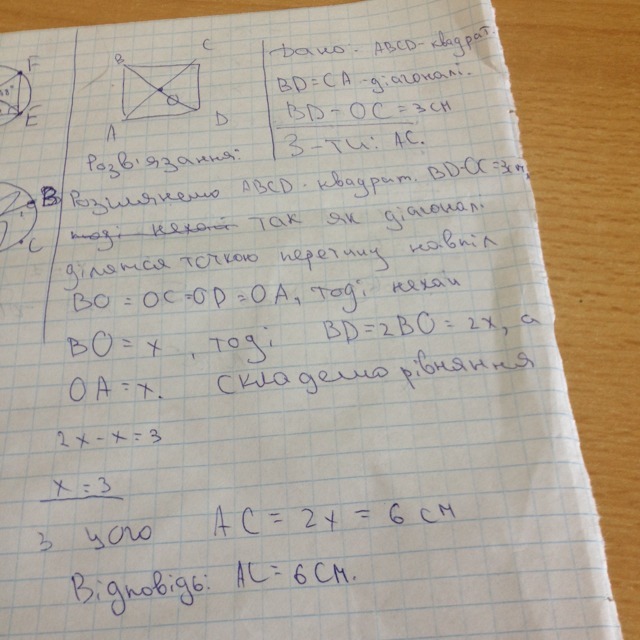 F
E
B
C
B C
O
A D
Дано: ABCD-квадрат.
BD=CA-діагоналі.
BD-OC=3см
З-ти: AC.
Розв'язання:
Розглянемо ABCD-квадрат. BD-OC=3см,
тоді нехай так як діагоналі
ділятся точкою перетину навпіл
BO=OC=OD=OA, тоді нехай
BO=x, тоді BD=2BO=2x, а
OA=x. Складемо рівняння
2x-x=3
x=3
З цього AC=2x=6см
Відповідь: AC=6см.